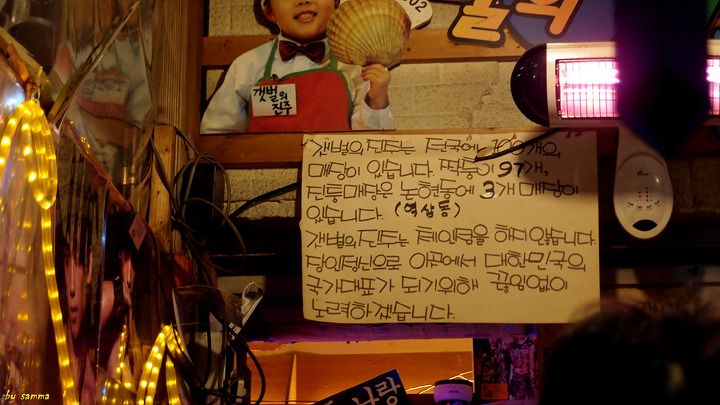 02
물의
갯벌의
진주
갯벌의 진주는 전국에 100개의
매장이 있습니다. 짝퉁이 97개,
진퉁매장은 논현동에 3개 매장이
있습니다. (역삼동)
갯벌의 진주는 체인점을 하지 않습니다.
장인정신으로 이곳에서 대한민국의
국가대표가 되기위해 끊임없이
노력하겠습니다.
나랑
by samma